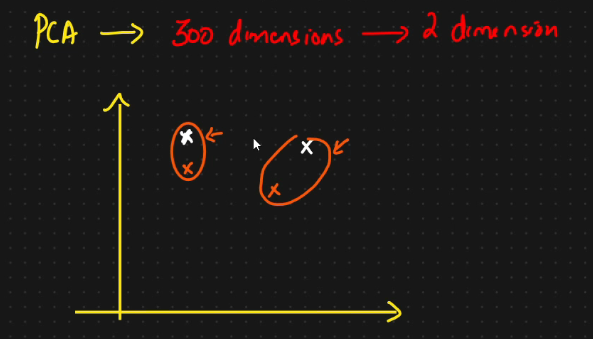 PCA → 300 dimensions → 2 dimension
x x
x x